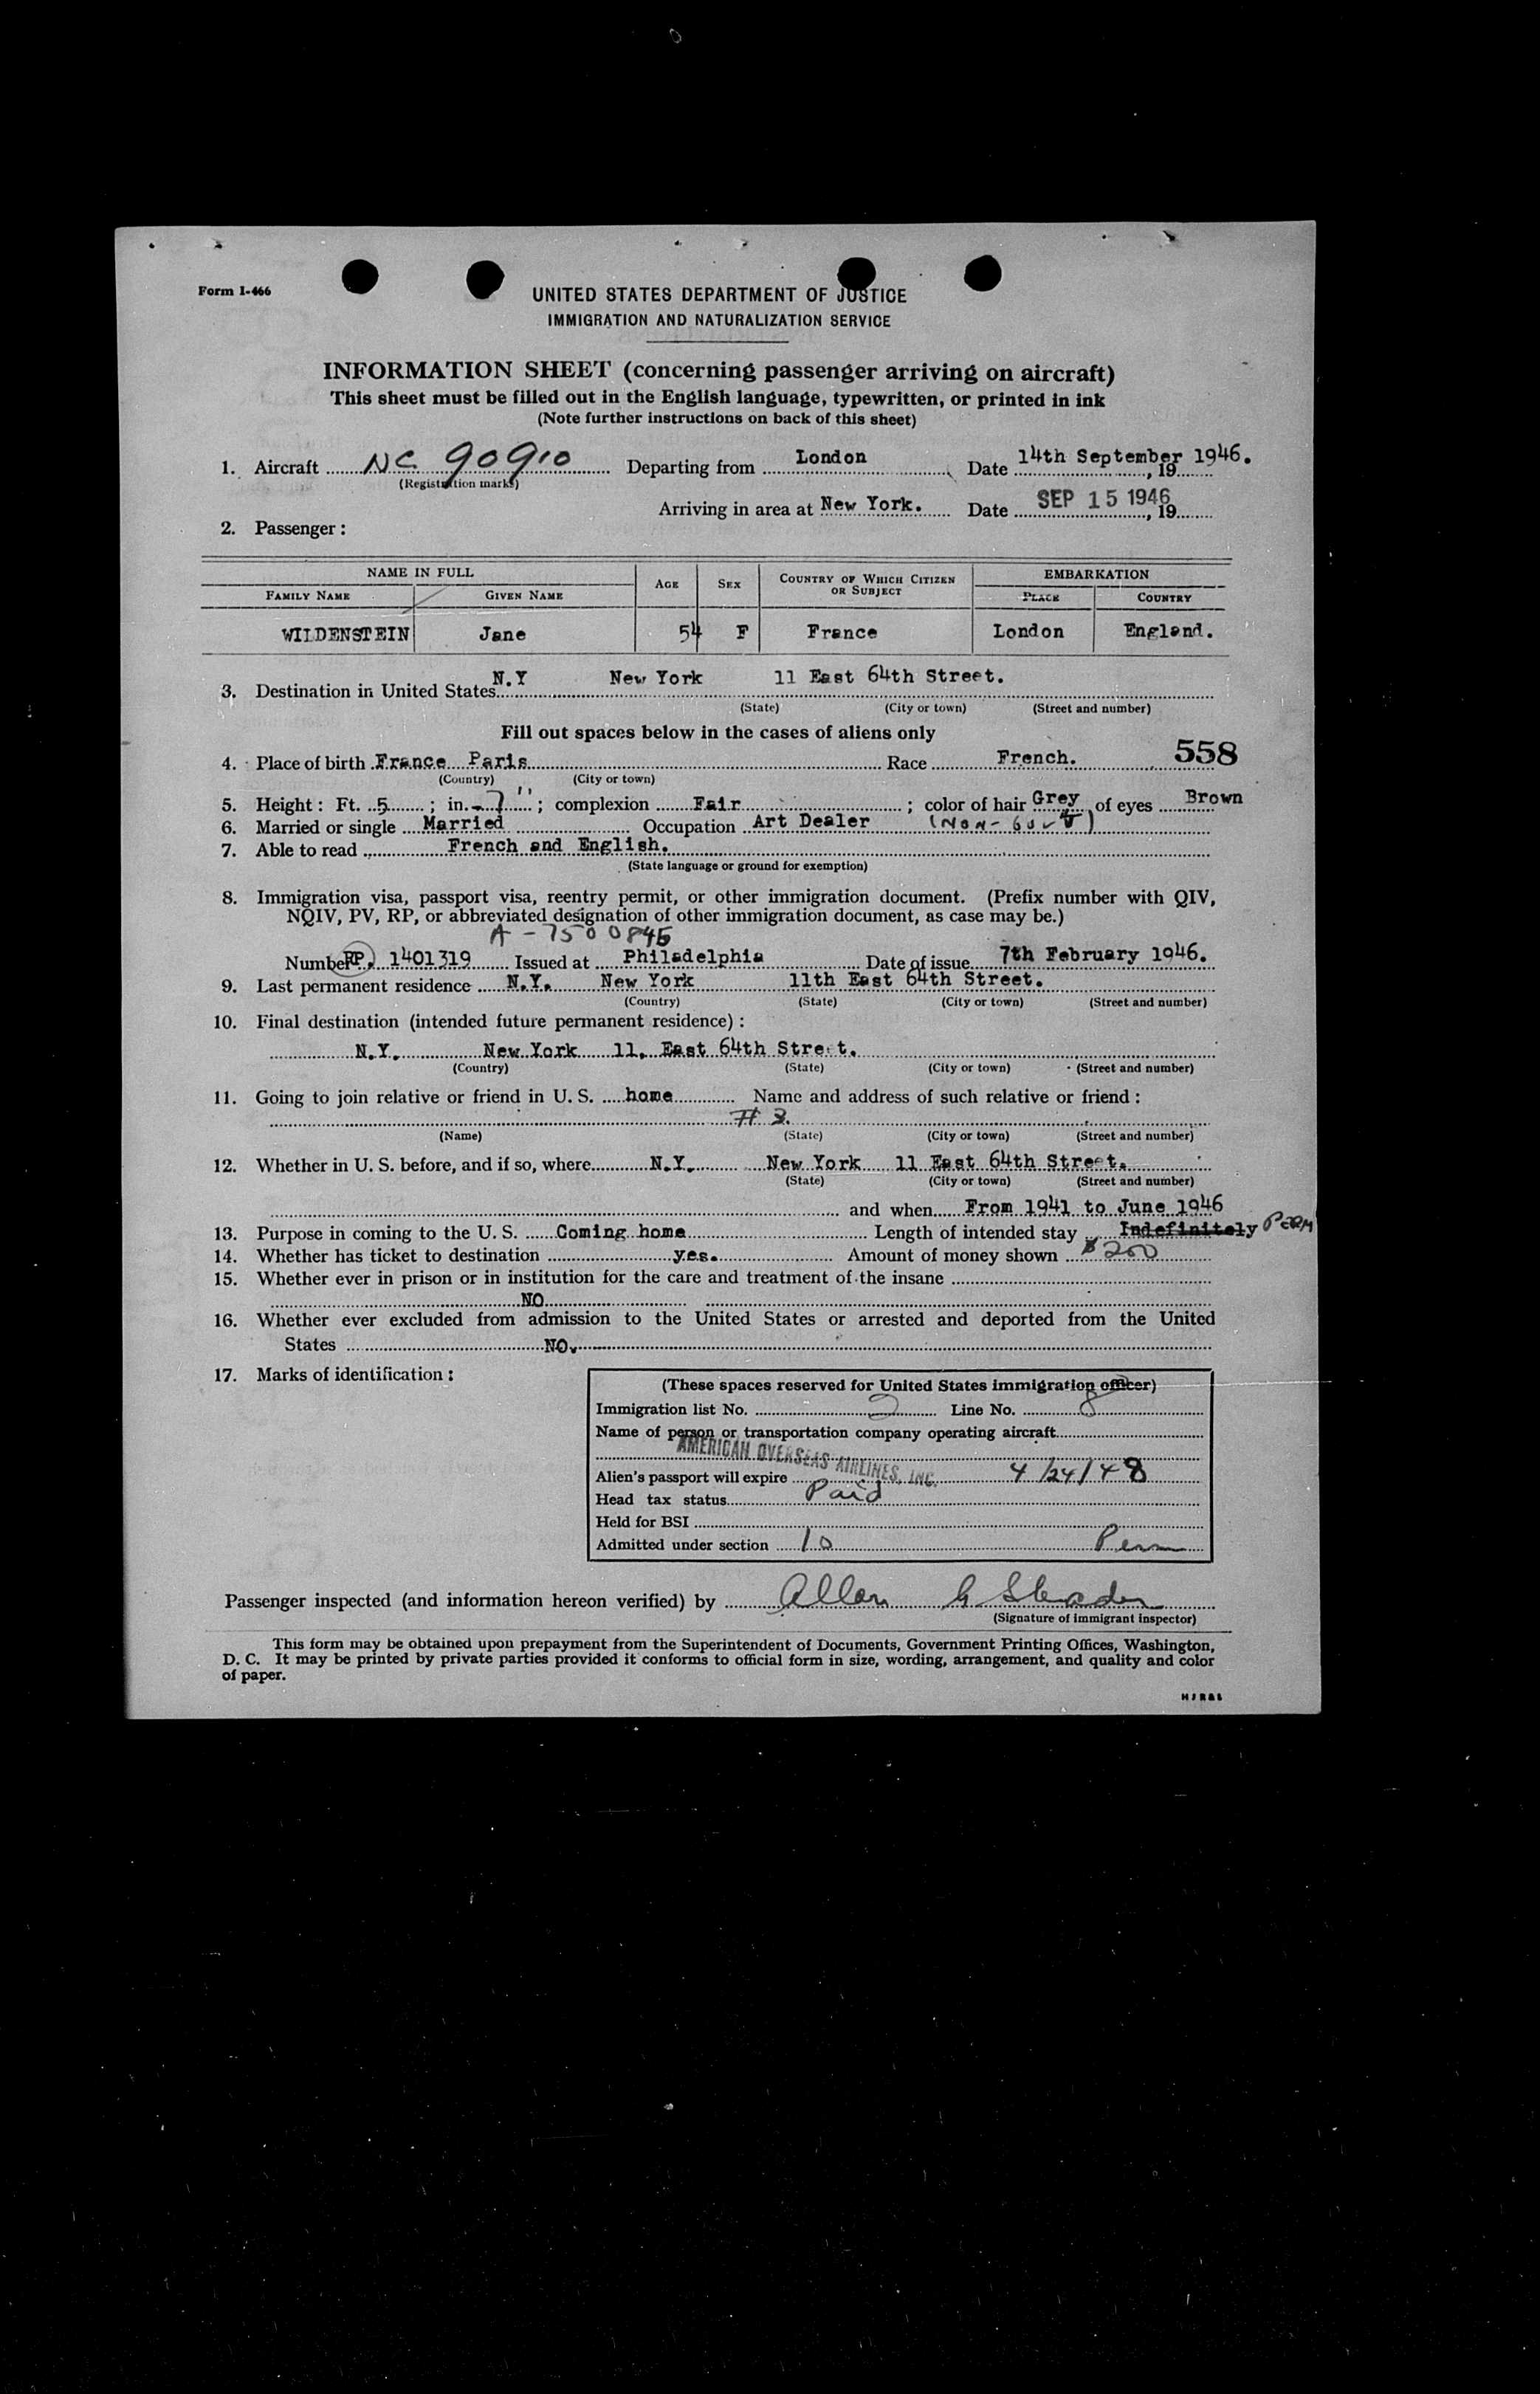 Form I-466
UNITED STATES DEPARTMENT OF JUSTICE
IMMIGRATION AND NATURALIZATION SERVICE
INFORMATION SHEET (concerning passenger arriving on aircraft)
This sheet must be filled out in the English language, typewritten, or printed in ink
(Note further instructions on back of this sheet)
1. Aircraft NC 90910 Departing from London Date 14th September 1946. , 19
(Registration marks)
Arriving in area at New York. Date SEP 15 1946 , 19
2. Passenger :
NAME IN FULL AGE SEX COUNTRY OF WHICH CITIZEN OR SUBJECT EMBARKATION
FAMILY NAME GIVEN NAME PLACE COUNTRY
WILDENSTEIN Jane 54 F France London England.
3. Destination in United States N.Y New York 11 East 64th Street.
(State) (City or town) (Street and number)
Fill out spaces below in the cases of aliens only
558
4. Place of birth France Paris Race French.
(Country) (City or town)
5. Height : Ft. 5 ; in. 7" ; complexion Fair ; color of hair Grey of eyes Brown
6. Married or single Married Occupation Art Dealer (NON-GOVT)
7. Able to read French and English.
(State language or ground for exemption)
8. Immigration visa, passport visa, reentry permit, or other immigration document. (Prefix number with QIV,
NQIV, PV, RP, or abbreviated designation of other immigration document, as case may be.)
A-7500845
Number RP. 1401319 Issued at Philadelphia Date of issue 7th February 1946.
9. Last permanent residence N.Y. New York 11th East 64th Street.
(Country) (State) (City or town) (Street and number)
10. Final destination (intended future permanent residence) :
N.Y. New York 11. East 64th Street.
(Country) (State) (City or town) (Street and number)
11. Going to join relative or friend in U. S. home Name and address of such relative or friend :
# 3.
(Name) (State) (City or town) (Street and number)
12. Whether in U. S. before, and if so, where N.Y. New York 11 East 64th Street.
(State) (City or town) (Street and number)
and when From 1941 to June 1946
13. Purpose in coming to the U. S. Coming home Length of intended stay Indefinitely PERM
14. Whether has ticket to destination yes. Amount of money shown $200
15. Whether ever in prison or in institution for the care and treatment of the insane
NO
16. Whether ever excluded from admission to the United States or arrested and deported from the United
States NO.
17. Marks of identification :
(These spaces reserved for United States immigration officer)
Immigration list No. 2 Line No. 8
Name of person or transportation company operating aircraft
AMERICAN OVERSEAS AIRLINES, INC.
Alien's passport will expire 4/24/48
Head tax status Paid
Held for BSI
Admitted under section 10 Perm
Passenger inspected (and information hereon verified) by Allan G
(Signature of immigrant inspector)
This form may be obtained upon prepayment from the Superintendent of Documents, Government Printing Offices, Washington,
D. C. It may be printed by private parties provided it conforms to official form in size, wording, arrangement, and quality and color
of paper.